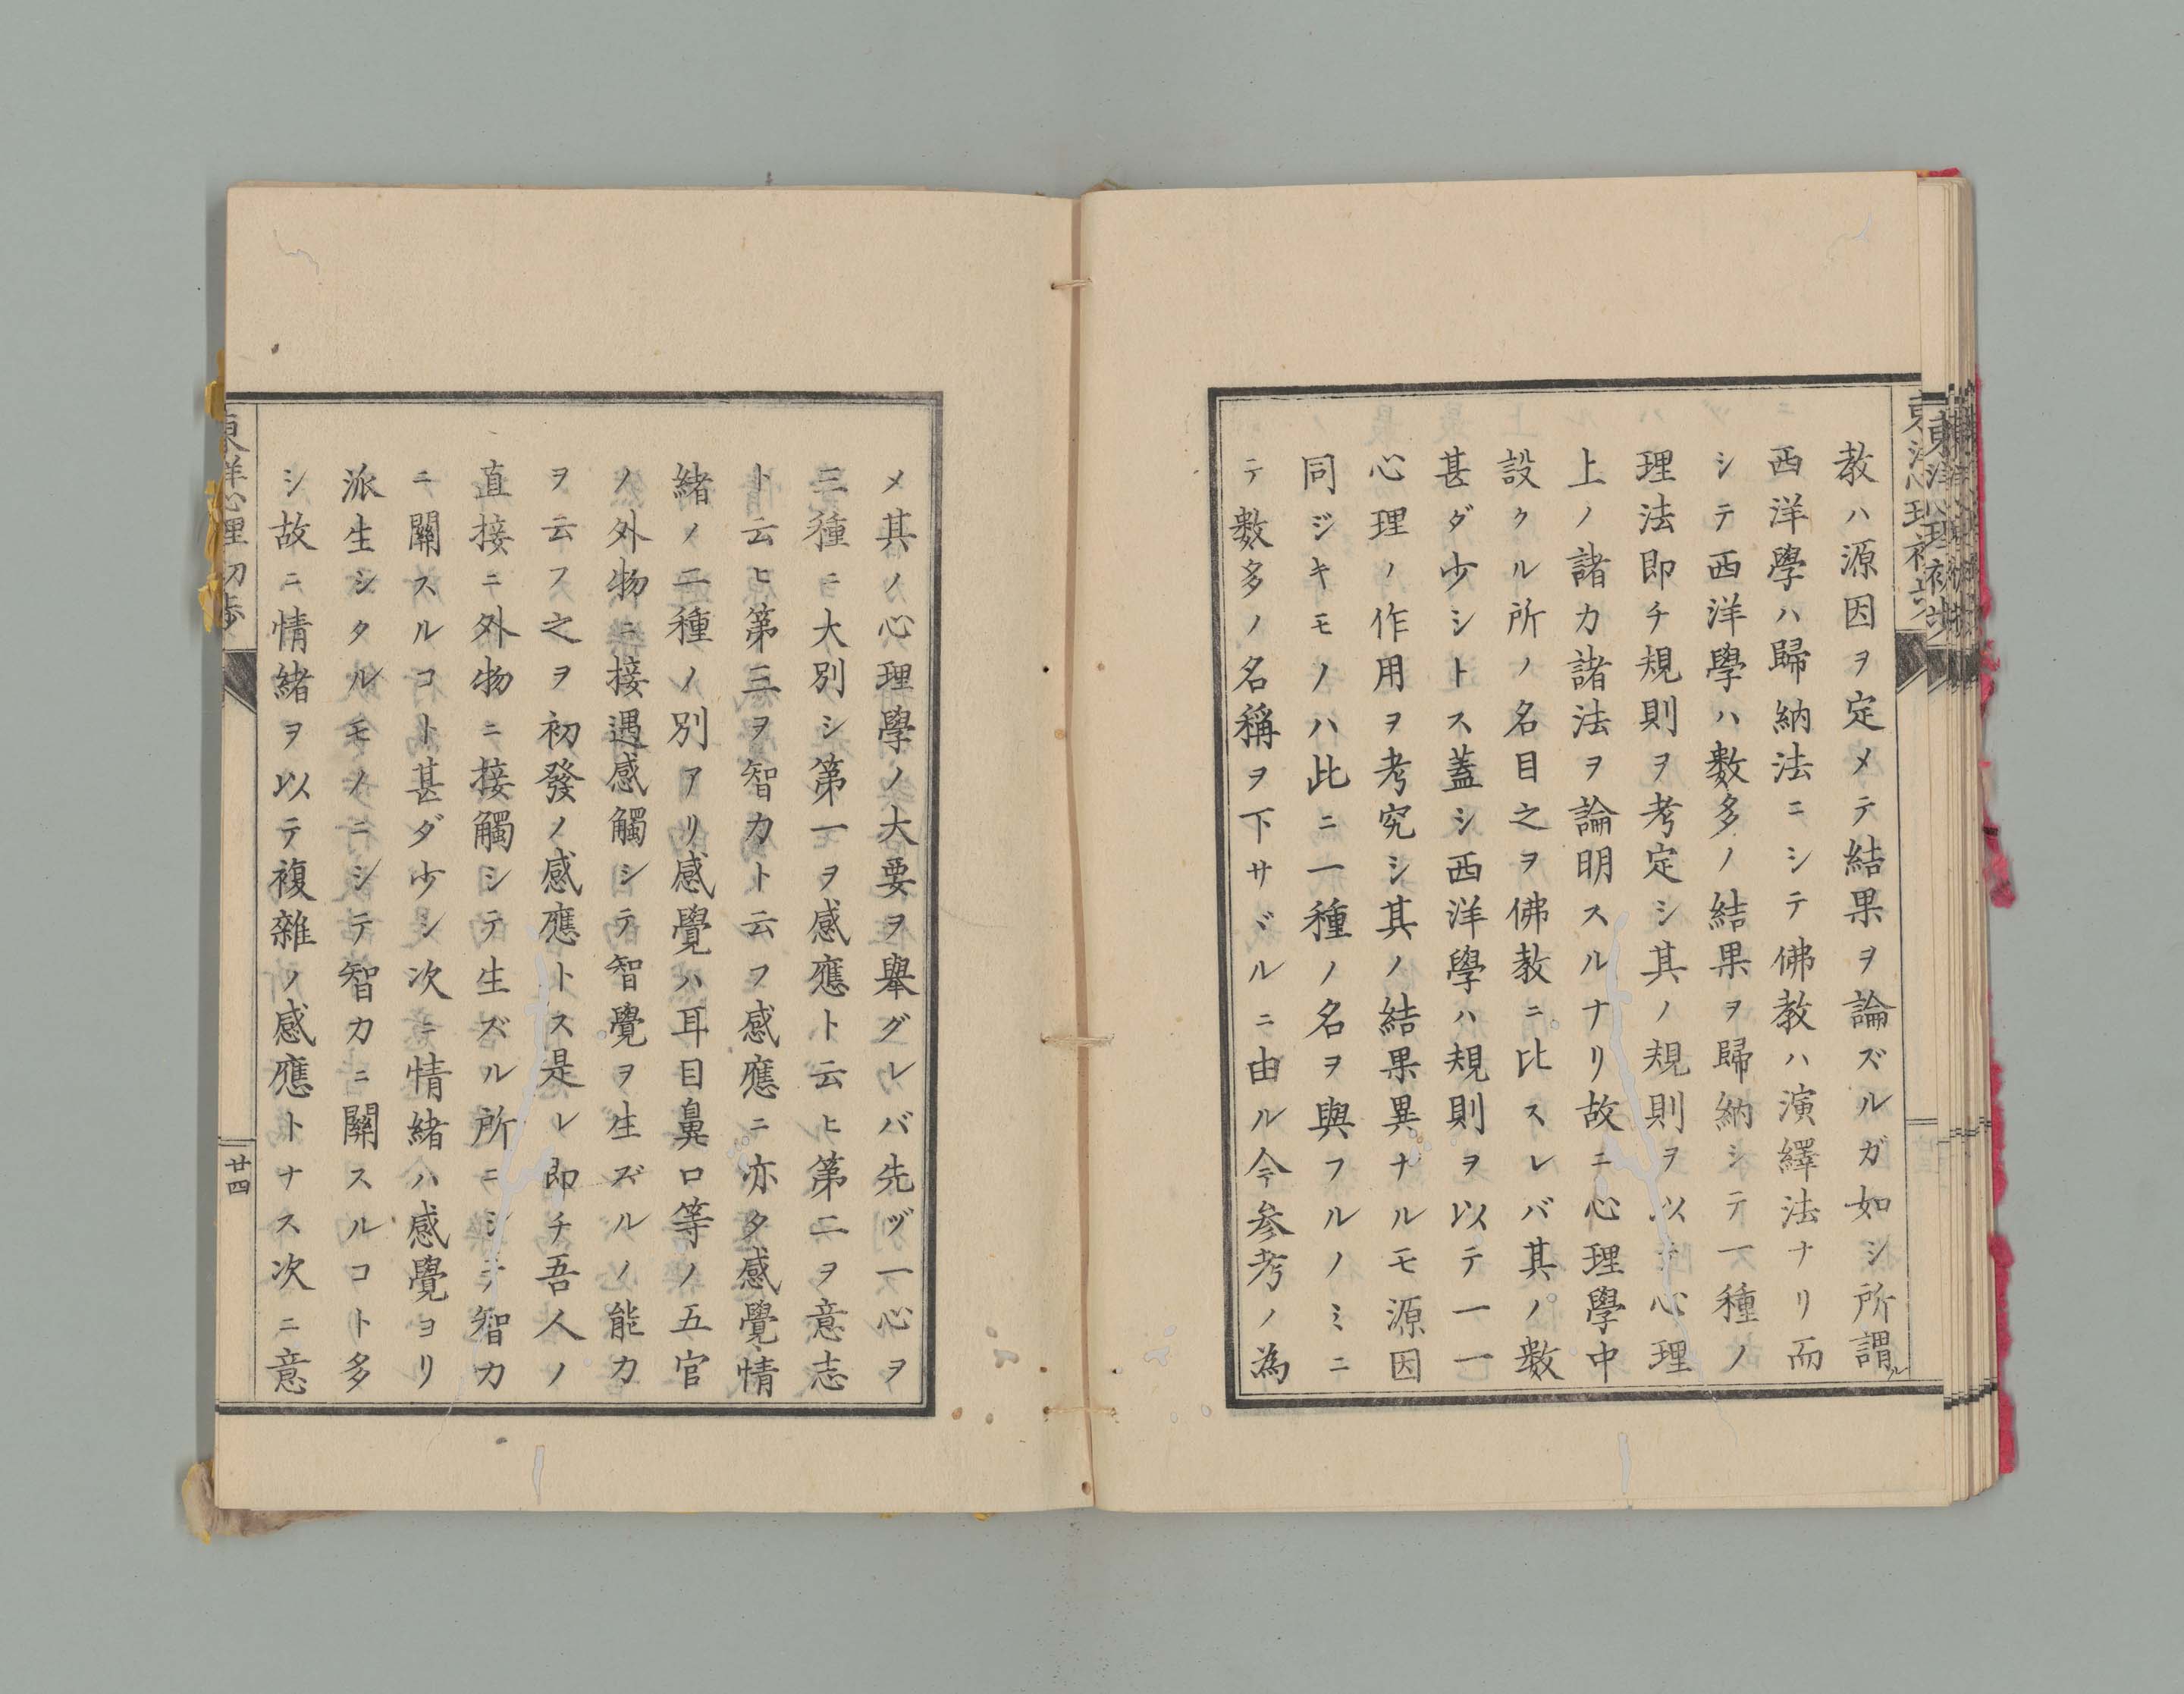 教ハ源因ヲ定メテ結果ヲ論ズルガ如シ所謂ル
西洋學ハ歸納法ニシテ佛教ハ演繹法ナリ而
シテ西洋學ハ數多ノ結果ヲ歸納シテ一種ノ
理法即チ規則ヲ考定シ其ノ規則ヲ以テ心理
上ノ諸力諸法ヲ論明スルナリ故ニ心理學中
設クル所ノ名目之ヲ佛教ニ比スレバ其ノ數
甚ダ少シトス蓋シ西洋學ハ規則ヲ以テ一一
心理ノ作用ヲ考究シ其ノ結果異ナルモ源因
同ジキモノハ此ニ一種ノ名ヲ與フルノミニ
テ數多ノ名稱ヲ下サヾルニ由ル今参考ノ為
メ其ノ心理學ノ大要ヲ擧グレバ先ヅ一心ヲ
三種ニ大別シ第一ヲ感應ト云ヒ第二ヲ意志
ト云ヒ第三ヲ智力ト云フ感應ニ亦タ感覺、情
緒ノ二種ノ別アリ感覺ハ耳目鼻口等ノ五官
ノ外物ニ接遇感觸シテ智覺ヲ生ズルノ能力
ヲ云フ之ヲ初發ノ感應トス是レ即チ吾人ノ
直接ニ外物ニ接觸シテ生ズル所ニシテ智力
ニ關スルコト甚ダ少シ次ニ情緒ハ感覺ヨリ
派生シタルモノニシテ智力ニ關スルコト多
シ故ニ情緒ヲ以テ複雜ノ感應トナス次ニ意
東洋心理初歩
廿四